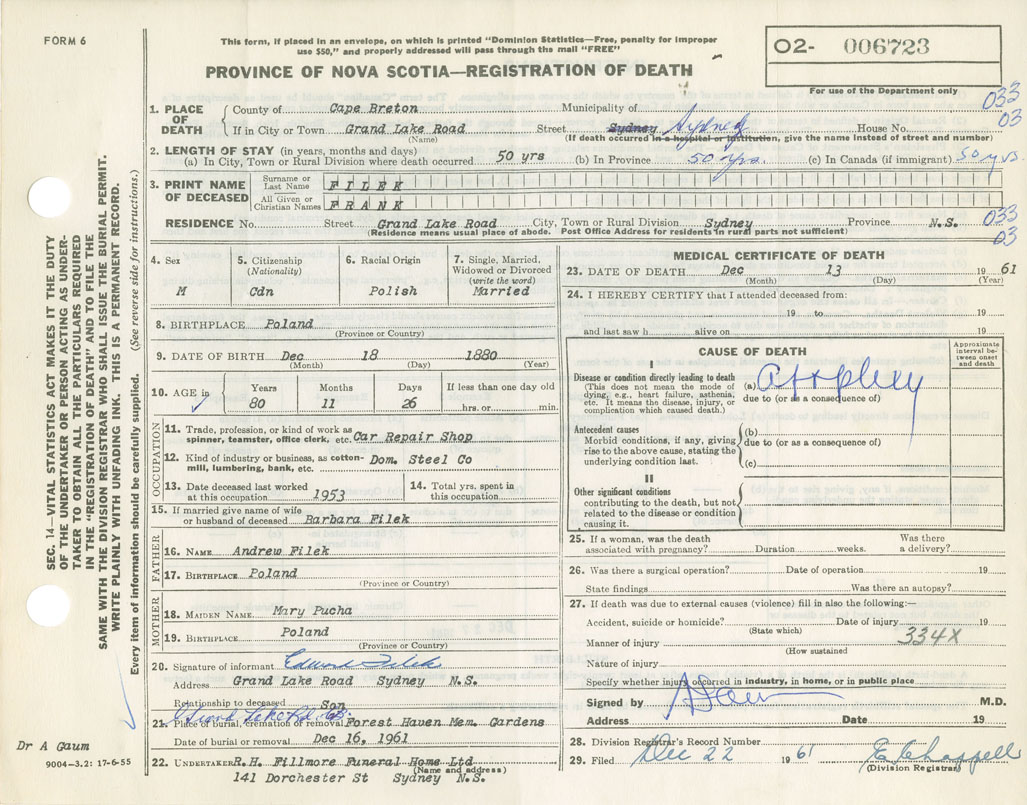 FORM 6
This form, if placed in an envelope, on which is printed "Dominion Statistics—Free, penalty for improper
use $50," and properly addressed will pass through the mail "FREE"
PROVINCE OF NOVA SCOTIA—REGISTRATION OF DEATH
02- 006723
For use of the Department only
033
03
1. PLACE OF DEATH
County of Cape Breton Municipality of
If in City or Town Grand Lake Road Street Sydney Sydney House No.
(Name) (If death occurred in a hospital or institution, give the name instead of street and number)
2. LENGTH OF STAY (in years, months and days)
(a) In City, Town or Rural Division where death occurred 50 yrs (b) In Province 50 yrs. (c) In Canada (if immigrant) 50 yrs.
3. PRINT NAME OF DECEASED
Surname or Last Name FILEK
All Given or Christian Names FRANK
RESIDENCE No. Street Grand Lake Road City, Town or Rural Division Sydney Province N.S. 033
(Residence means usual place of abode. Post Office Address for residents in rural parts not sufficient) 03
4. Sex
M
5. Citizenship
(Nationality)
Cdn
6. Racial Origin
Polish
7. Single, Married,
Widowed or Divorced
(write the word)
Married
8. BIRTHPLACE Poland
(Province or Country)
9. DATE OF BIRTH Dec 18 1880
(Month) (Day) (Year)
10. AGE in
Years Months Days If less than one day old
80 11 26 hrs. or min.
OCCUPATION
11. Trade, profession, or kind of work as
spinner, teamster, office clerk, etc. Car Repair Shop
12. Kind of industry or business, as cotton-
mill, lumbering, bank, etc. Dom. Steel Co
13. Date deceased last worked
at this occupation 1953
14. Total yrs. spent in
this occupation
15. If married give name of wife
or husband of deceased Barbara Filek
FATHER
16. NAME Andrew Filek
17. BIRTHPLACE Poland
(Province or Country)
MOTHER
18. MAIDEN NAME Mary Pucha
19. BIRTHPLACE Poland
(Province or Country)
20. Signature of informant Edward Filek
Address Grand Lake Road Sydney N.S.
Relationship to deceased Son
Grand Lake Rd. CB.
21. Place of burial, cremation or removal Forest Haven Mem. Gardens
Date of burial or removal Dec 16, 1961
22. UNDERTAKER R.H. Fillmore Funeral Home Ltd
(Name and address)
141 Dorchester St Sydney N.S.
MEDICAL CERTIFICATE OF DEATH
23. DATE OF DEATH Dec 13 1961
(Month) (Day) (Year)
24. I HEREBY CERTIFY that I attended deceased from:
19 to 19
and last saw h alive on 19
CAUSE OF DEATH
Approximate
interval be-
tween onset
and death
I
Disease or condition directly leading to death
(This does not mean the mode of
dying, e.g., heart failure, asthenia,
etc. It means the disease, injury, or
complication which caused death.)
(a)
due to (or as a consequence of)
Antecedent causes
Morbid conditions, if any, giving
rise to the above cause, stating the
underlying condition last.
(b)
due to (or as a consequence of)
(c)
II
Other significant conditions
contributing to the death, but not
related to the disease or condition
causing it.
25. If a woman, was the death
associated with pregnancy? Duration weeks. Was there
a delivery?
26. Was there a surgical operation? Date of operation 19
State findings Was there an autopsy?
27. If death was due to external causes (violence) fill in also the following:—
Accident, suicide or homicide? Date of injury 19
(State which)
Manner of injury 334X
(How sustained
Nature of injury
Specify whether injury occurred in industry, in home, or in public place
Signed by M.D.
Address Date 19
28. Division Registrar's Record Number
29. Filed Dec 22 1961 E Chappell
(Division Registrar)
SEC. 14—VITAL STATISTICS ACT MAKES IT THE DUTY
OF THE UNDERTAKER OR PERSON ACTING AS UNDER-
TAKER TO OBTAIN ALL THE PARTICULARS REQUIRED
IN THE "REGISTRATION OF DEATH" AND TO FILE THE
SAME WITH THE DIVISION REGISTRAR WHO SHALL ISSUE THE BURIAL PERMIT.
WRITE PLAINLY WITH UNFADING INK. THIS IS A PERMANENT RECORD.
Every item of information should be carefully supplied. (See reverse side for instructions.)
Dr A Gaum
9004-3.2: 17-6-55